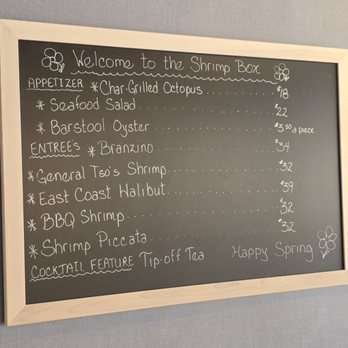 Welcome to the Shrimp Box
APPETIZER * Char-Grilled Octopus . . . $18
* Seafood Salad . . . . . . . . . . . . . . . $22
* Barstool Oyster . . . . . . . . . . . . . . $3.50 a piece
ENTREES * Branzino . . . . . . . . . . . . . $34
* General Tso's Shrimp . . . . . . . . . . $32
* East Coast Halibut . . . . . . . . . . . . $39
* BBQ Shrimp . . . . . . . . . . . . . . . . $32
* Shrimp Piccata . . . . . . . . . . . . . . $32
COCKTAIL FEATURE Tip-off Tea Happy Spring